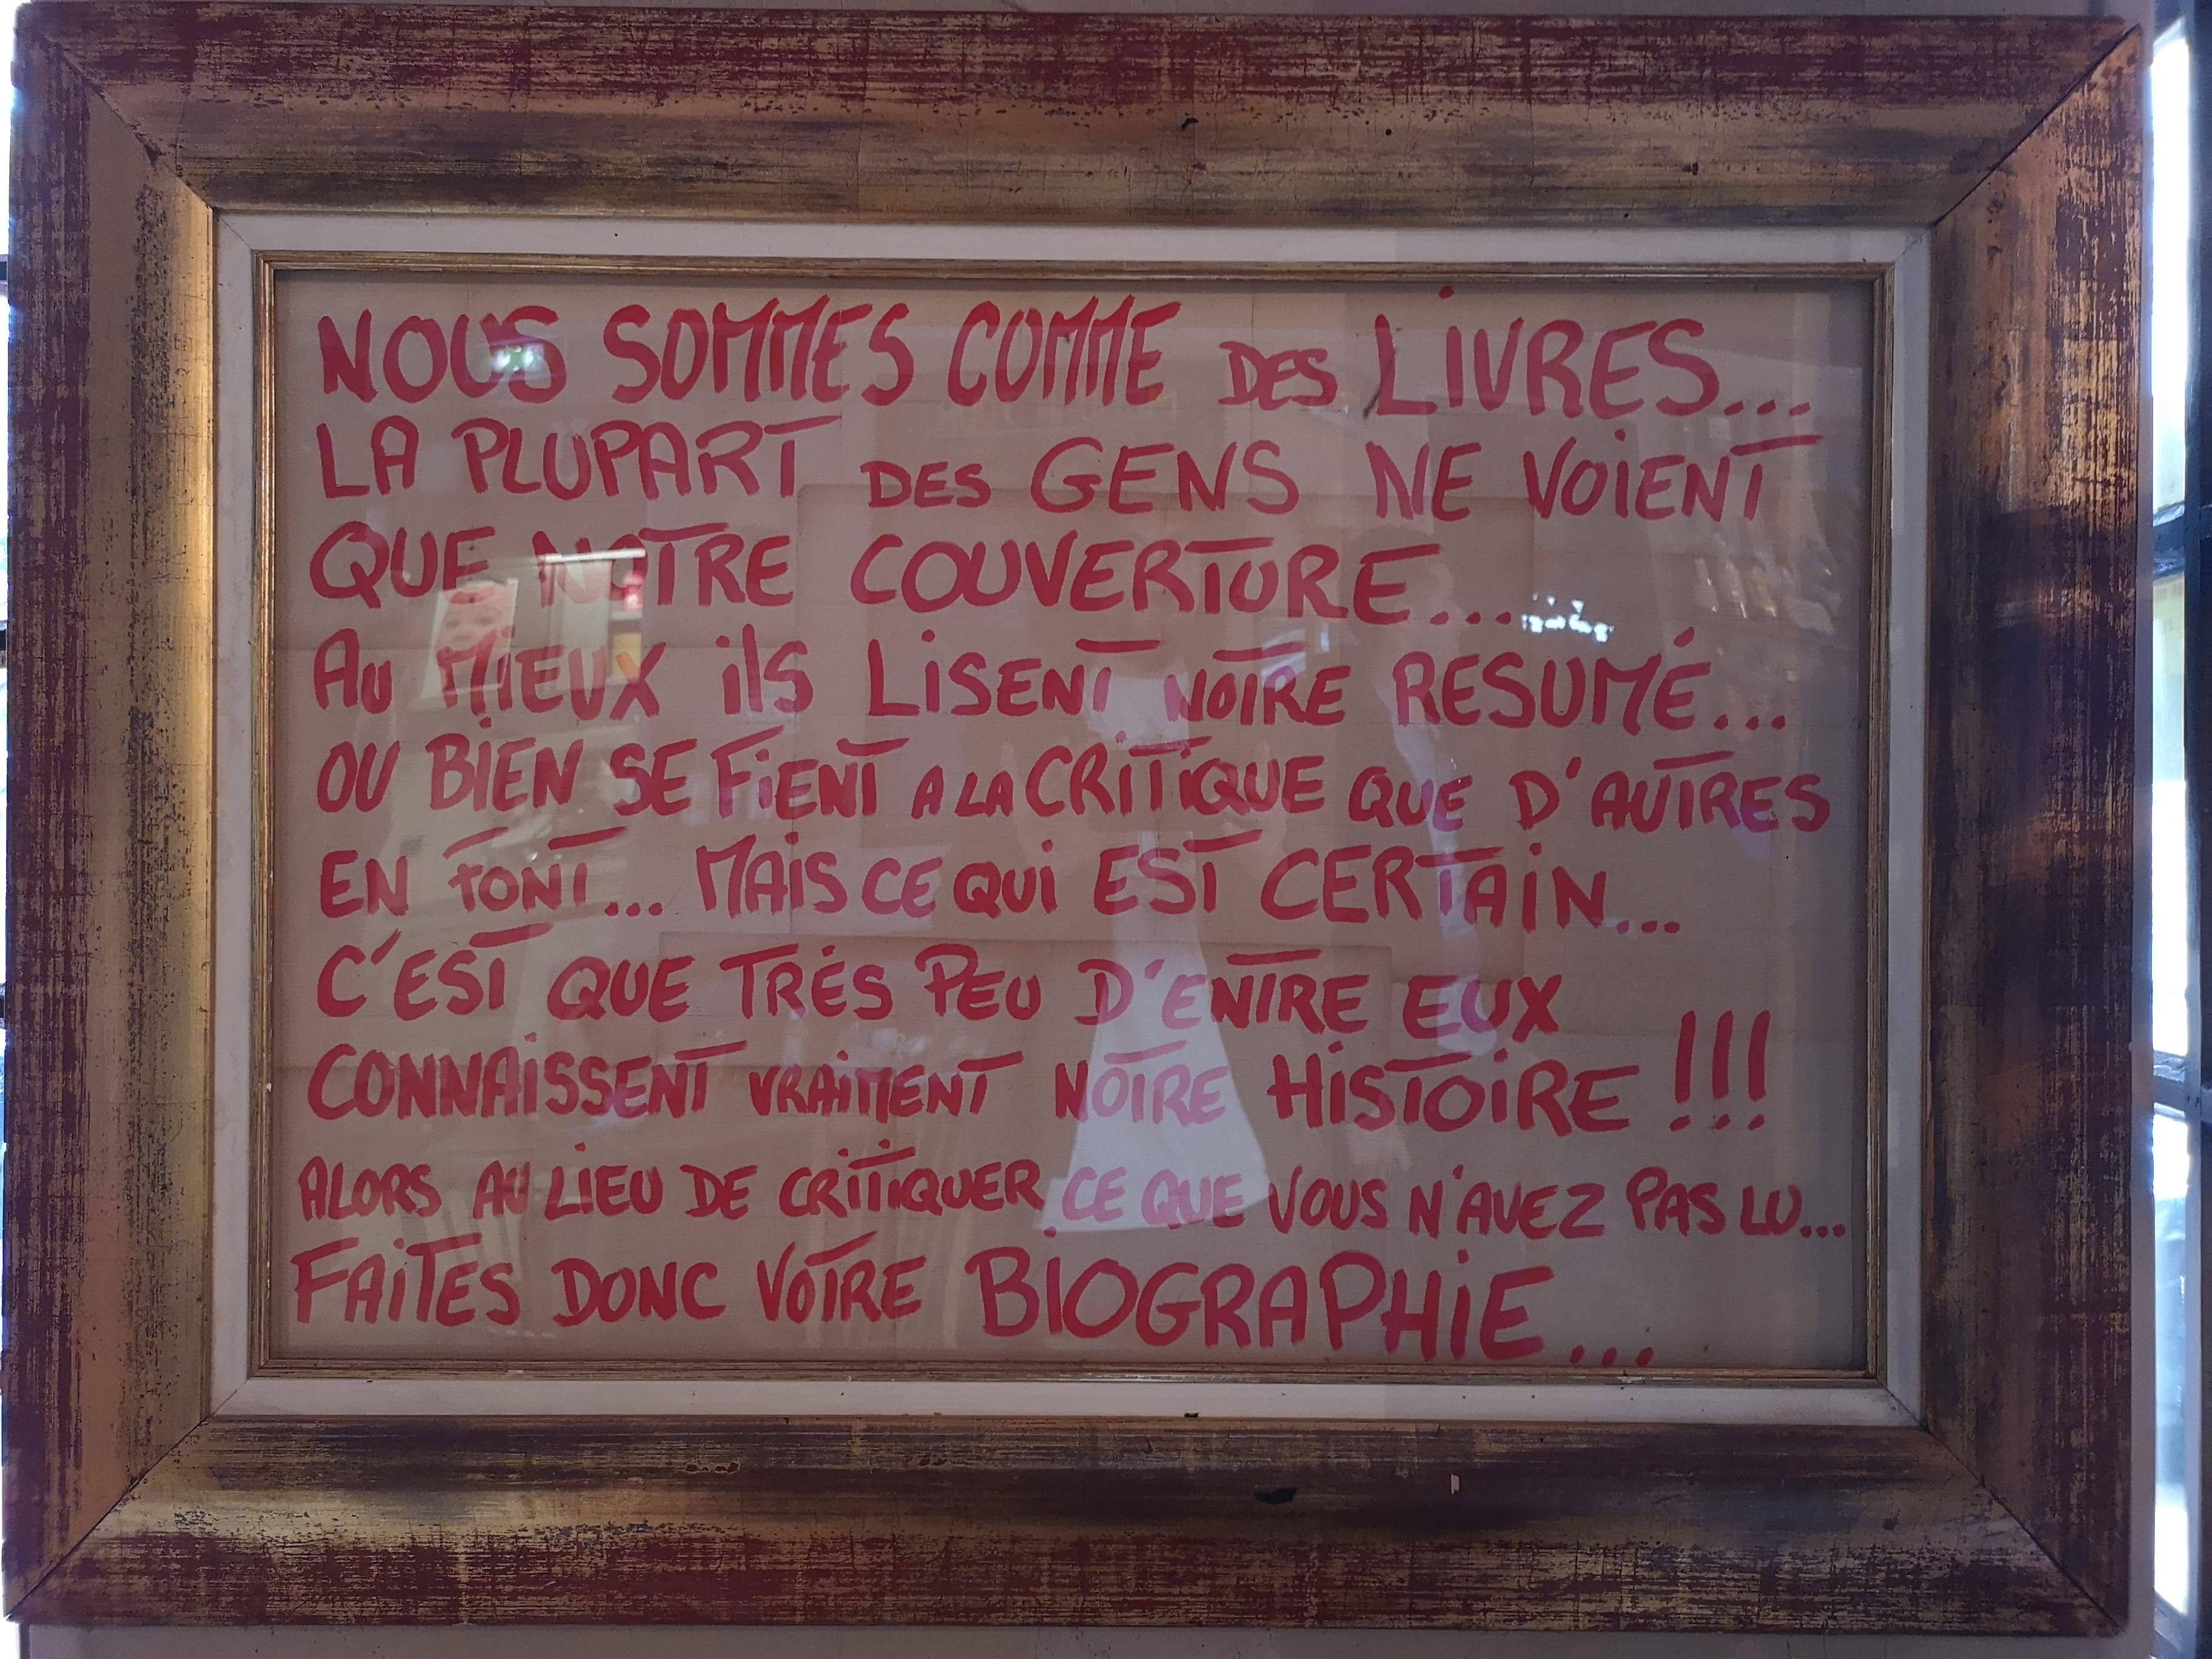 NOUS SOMMES COMME DES LiVRES...
LA PLUPART DES GENS NE VOiENT
QUE NOTRE COUVERTURE...
AU MiEUX ilS LiSENT NOTRE RESUMÉ...
OU BiEN SE FiENT A LA CRiTiQUE QUE D'AUTRES
EN FONT... MAiS CE QUi EST CERTAiN...
C'EST QUE TRÉS PEU D'ENTRE EUX
CONNAiSSENT VRAiMENT NOTRE HiSTOiRE !!!
ALORS AU LiEU DE CRiTiQUER CE QUE VOUS N'AVEZ PAS LU...
FAiTES DONC VOTRE BiOGRAPHiE...